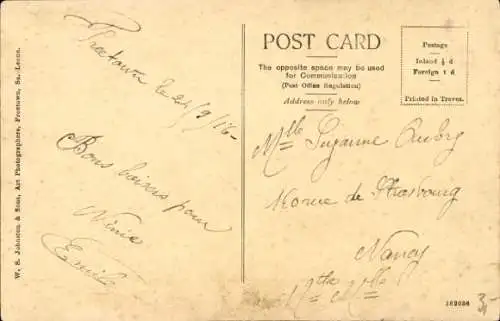 W. S. Johnston & Sons, Art Photographers, Freetown, Sa.-Leone.
Freetown le 24/9/16-
Bons baisers pour
Ninie
Emile
POST CARD
The opposite space may be used
for Communication
(Post Office Regulation)
Address only below
Postage
Inland ½ d
Foreign 1 d.
Printed in Treves.
Mlle Suzanne Aubry
rue de Strasbourg
Nancy
Mthe & Mlle
162036
3,-